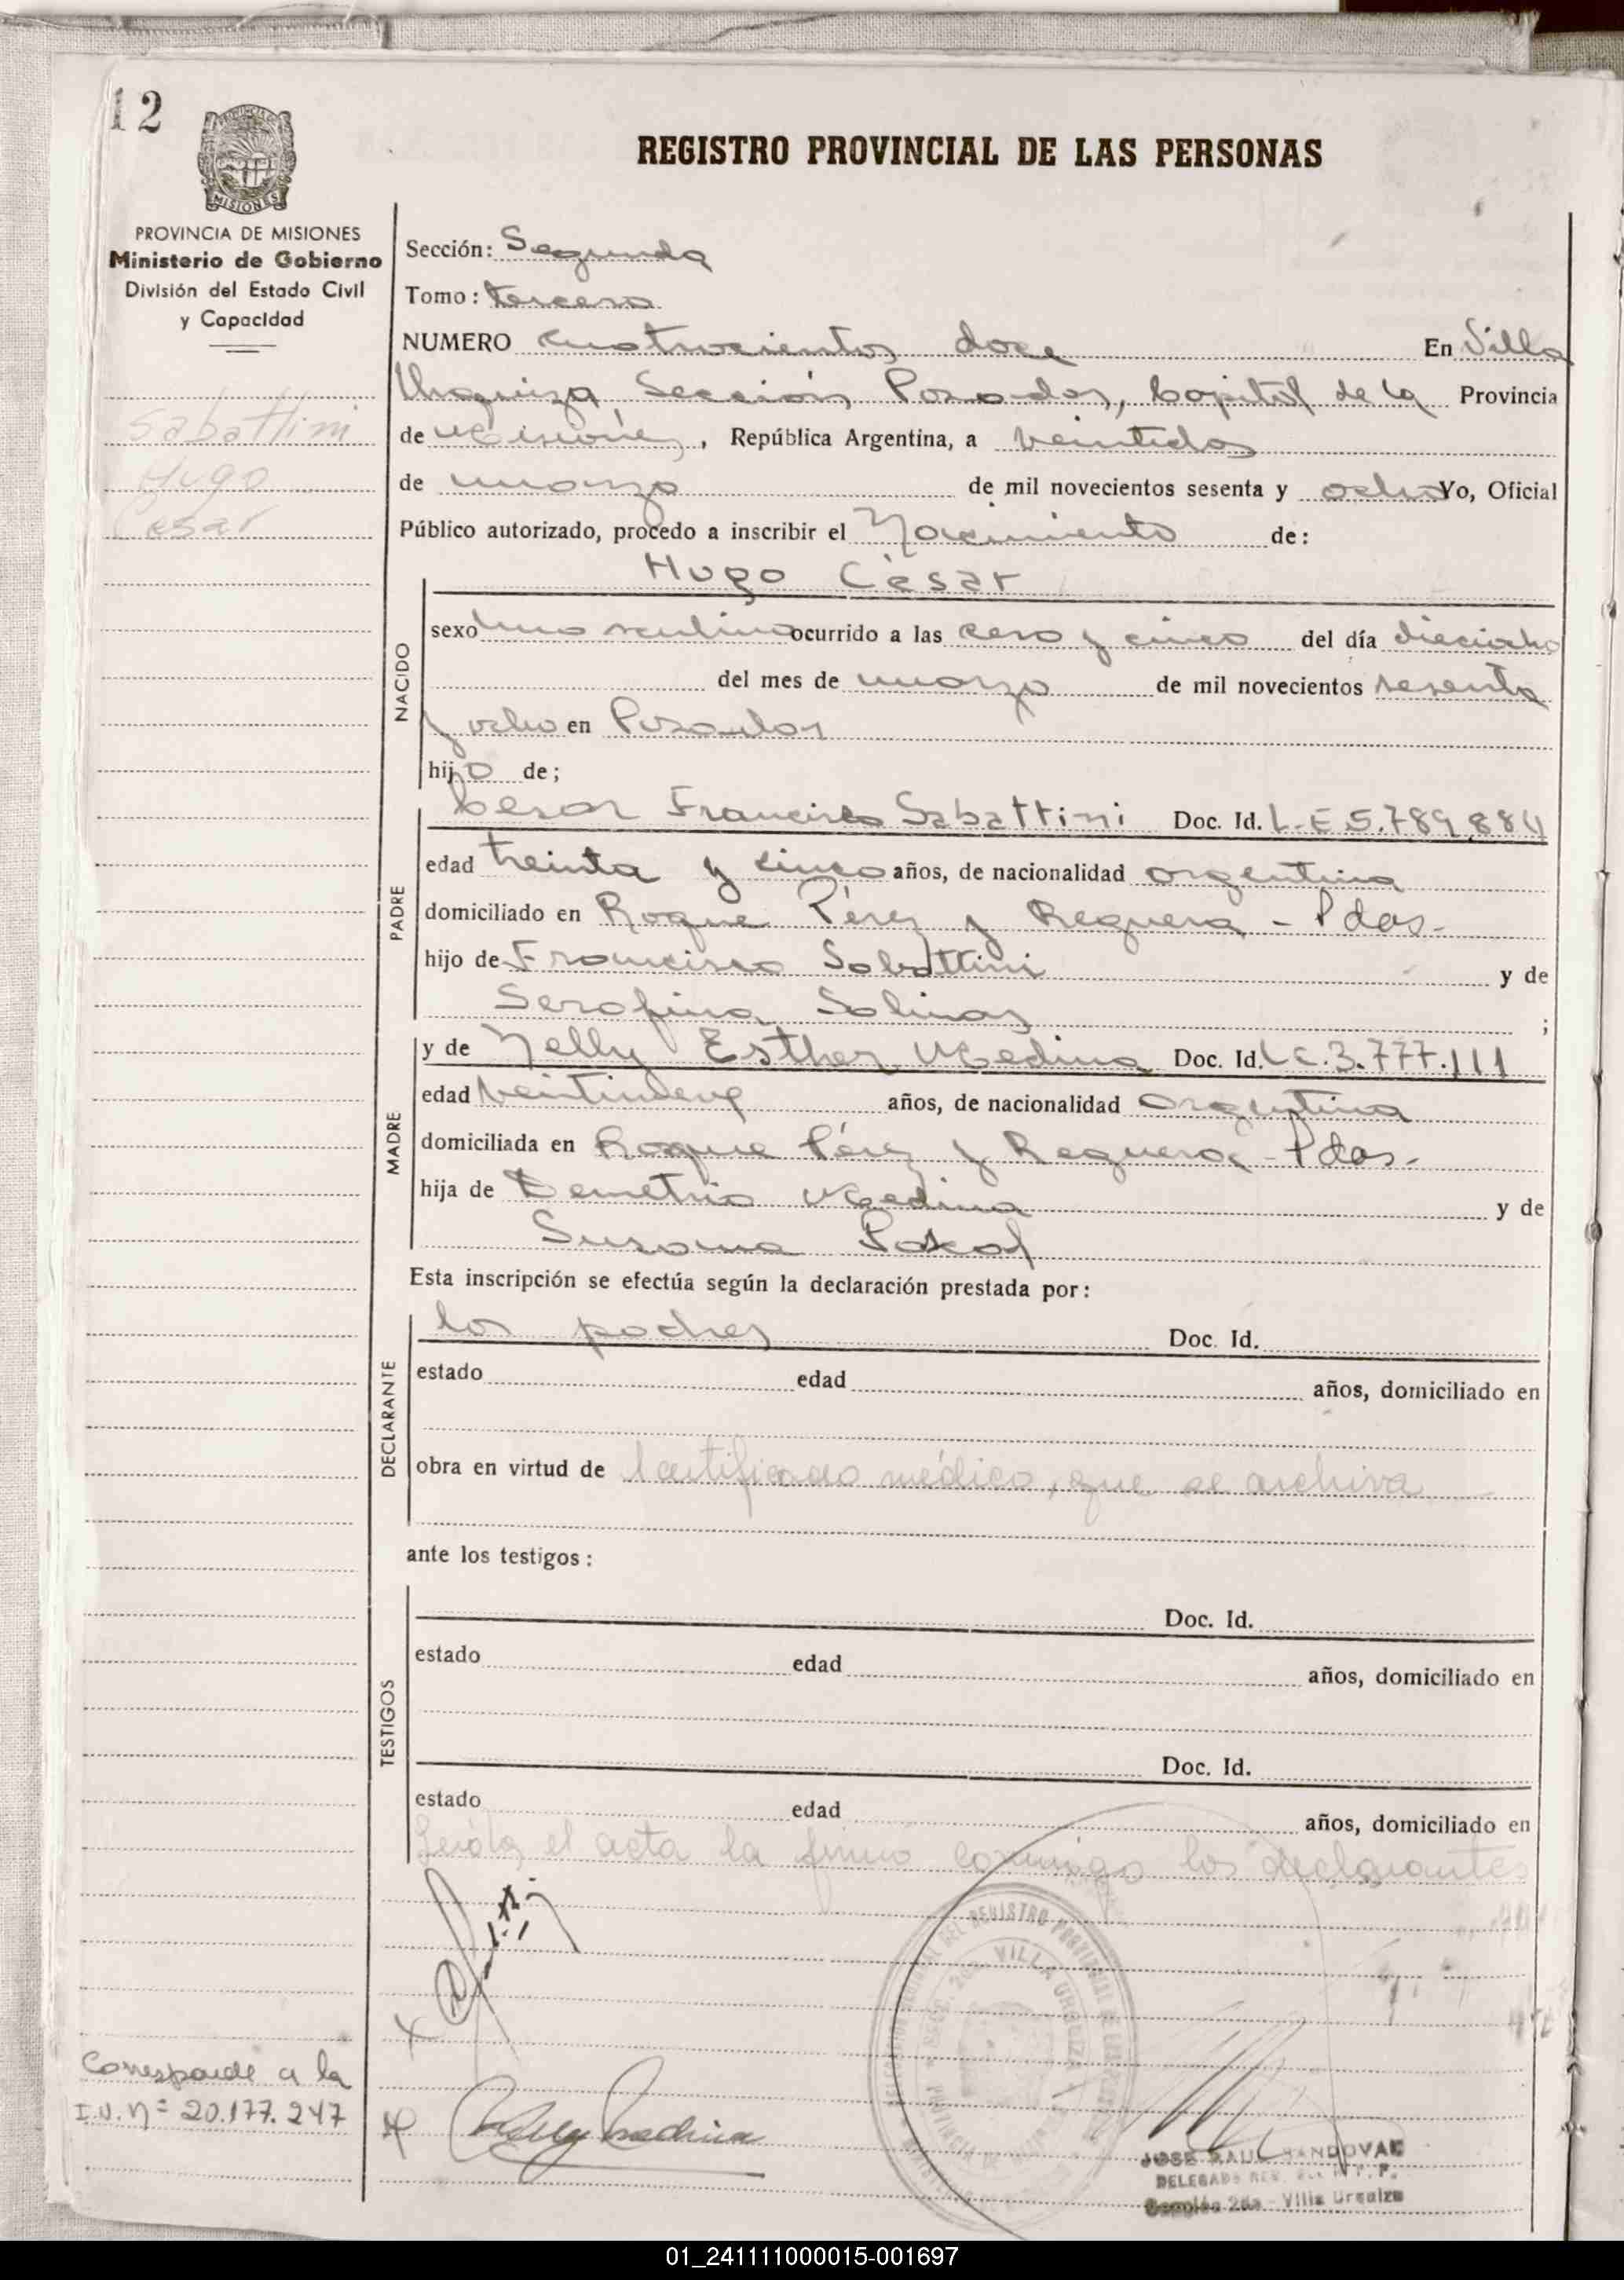 12
REGISTRO PROVINCIAL DE LAS PERSONAS
MISIONES
PROVINCIA DE MISIONES
Ministerio de Gobierno
División del Estado Civil
y Capacidad
Sabattini
Hugo
Cesar
Sección: Segunda
Tomo: tercero
NUMERO cuatrocientos doce En Villa
Urquiza Sección Posadas, Capital de la Provincia
de Misiones, República Argentina, a veintidos
de marzo de mil novecientos sesenta y ocho Yo, Oficial
Público autorizado, procedo a inscribir el Nacimiento de:
Hugo César
NACIDO
sexo masculino ocurrido a las cero y cinco del día dieciocho
del mes de marzo de mil novecientos sesenta
y ocho en Posadas
hijo de;
PADRE
Cesar Francisco Sabattini Doc. Id. L.E. 5.789.884
edad treinta y cinco años, de nacionalidad argentina
domiciliado en Roque Pérez y Reguera - Pdas.
hijo de Francisco Sabattini y de
Serafina Salinas ;
MADRE
y de Nelly Esther Medina Doc. Id. L C. 3.777.111
edad veintinueve años, de nacionalidad argentina
domiciliada en Roque Pérez y Reguera - Pdas.
hija de Demetrio Medina y de
Susana
Esta inscripción se efectúa según la declaración prestada por:
DECLARANTE
los padres Doc. Id.
estado edad años, domiciliado en
obra en virtud de Certificado médico, que se archiva
ante los testigos:
TESTIGOS
Doc. Id.
estado edad años, domiciliado en
Doc. Id.
estado edad años, domiciliado en
Leída el acta la firmó conmigo los declarantes
VILLA URQUIZA
Corresponde a la
I.N. nº 20.177.247
Nelly Medina
JOSE RAUL SANDOVAL
DELEGADO
Sección 2da. - Villa Urquiza
01_241111000015-001697